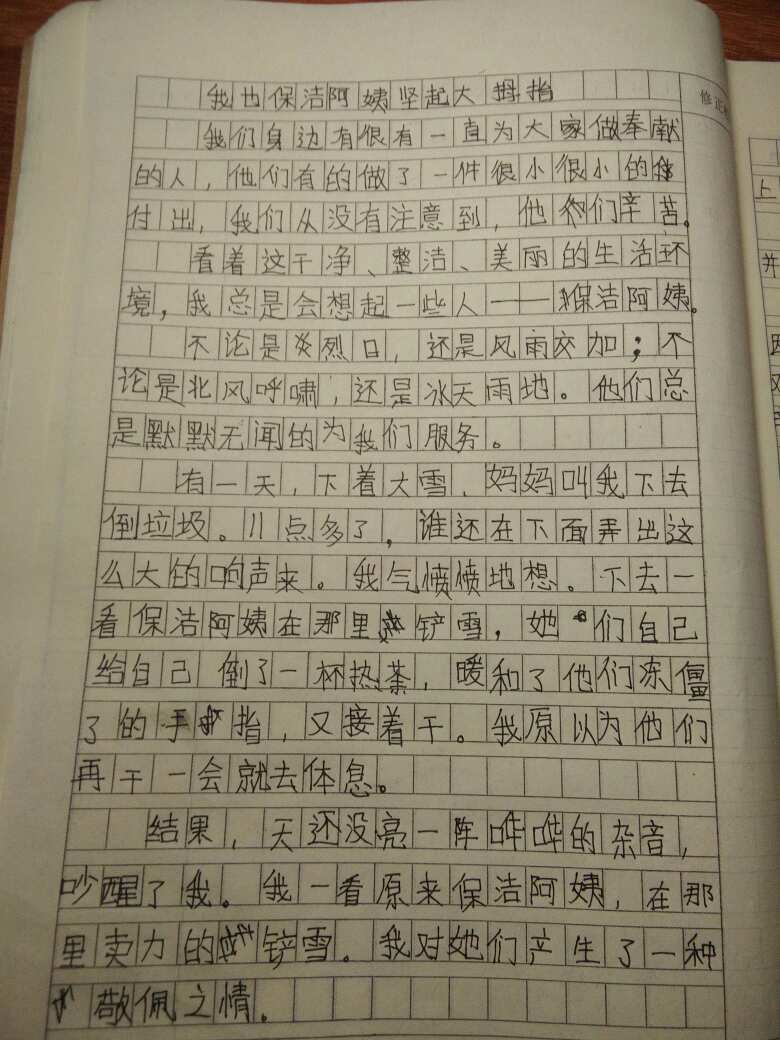 我也保洁阿姨坚起大拇指
修正
我们身边有很有一直为大家做奉献
的人，他们有的做了一件很小很小的
付出，我们从没有注意到，他们辛苦。
看着这干净、整洁、美丽的生活环
境，我总是会想起一些人——保洁阿姨。
不论是炎烈日，还是风雨交加；不
论是北风呼啸，还是冰天雨地。他们总
是默默无闻的为我们服务。
有一天，下着大雪，妈妈叫我下去
倒垃圾。11点多了，谁还在下面弄出这
么大的响声来。我气愤愤地想。下去一
看保洁阿姨在那里铲雪，她们自己
给自己倒了一杯热茶，暖和了他们冻僵
了的手指，又接着干。我原以为他们
再干一会就去体息。
结果，天还没亮一阵哗哗的杂音，
吵醒了我。我一看原来保洁阿姨，在那
里卖力的铲雪。我对她们产生了一种
敬佩之情。
上